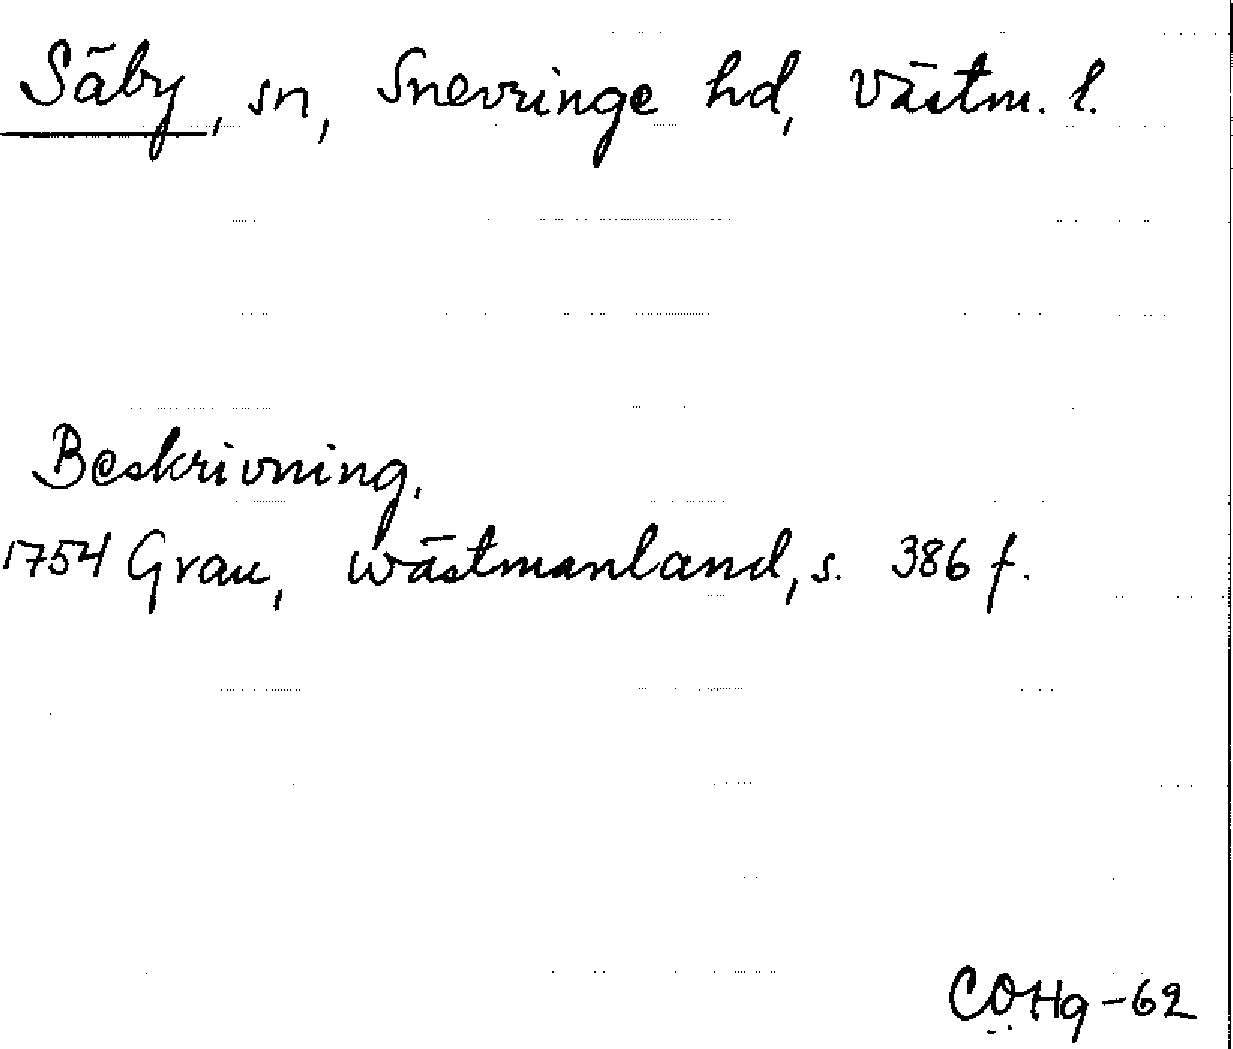 Säby, sn, Snevringe hd, Västm. l.
Beskrivning.
1754 Grau, Wästmanland, s. 386 f.
COHg-62